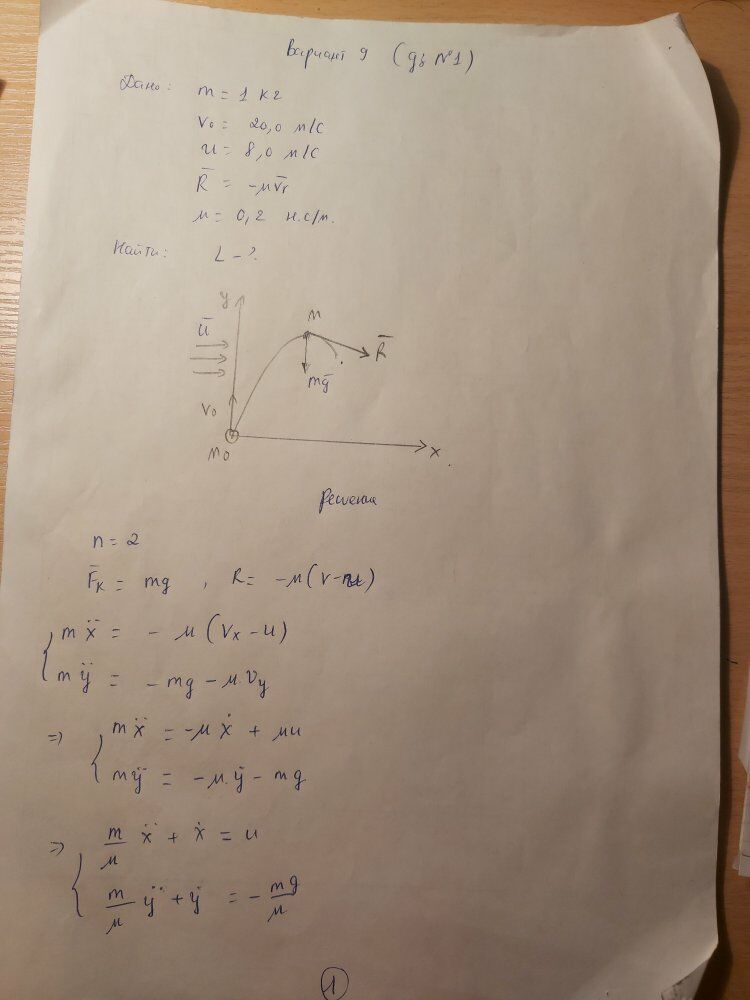 Вариант 9 (дз №1)
Дано: m = 1 кг
v₀ = 20,0 м/с
u = 8,0 м/с
R̄ = -μv̄r
μ = 0,2 н.с/м.
Найти: L - ?
y
ū
M
R̄
mḡ
v₀
M0
x
Решение
n = 2
F̄к = mg , R = -μ(v-u)
m ẍ = - μ (Vx - u)
m ÿ = - mg - μ.Vy
=> mẍ = -μ ẋ + μu
mÿ = -μ.ẏ - mg
=> m/μ ẍ + ẋ = u
m/μ ÿ + ẏ = - mg/μ
1